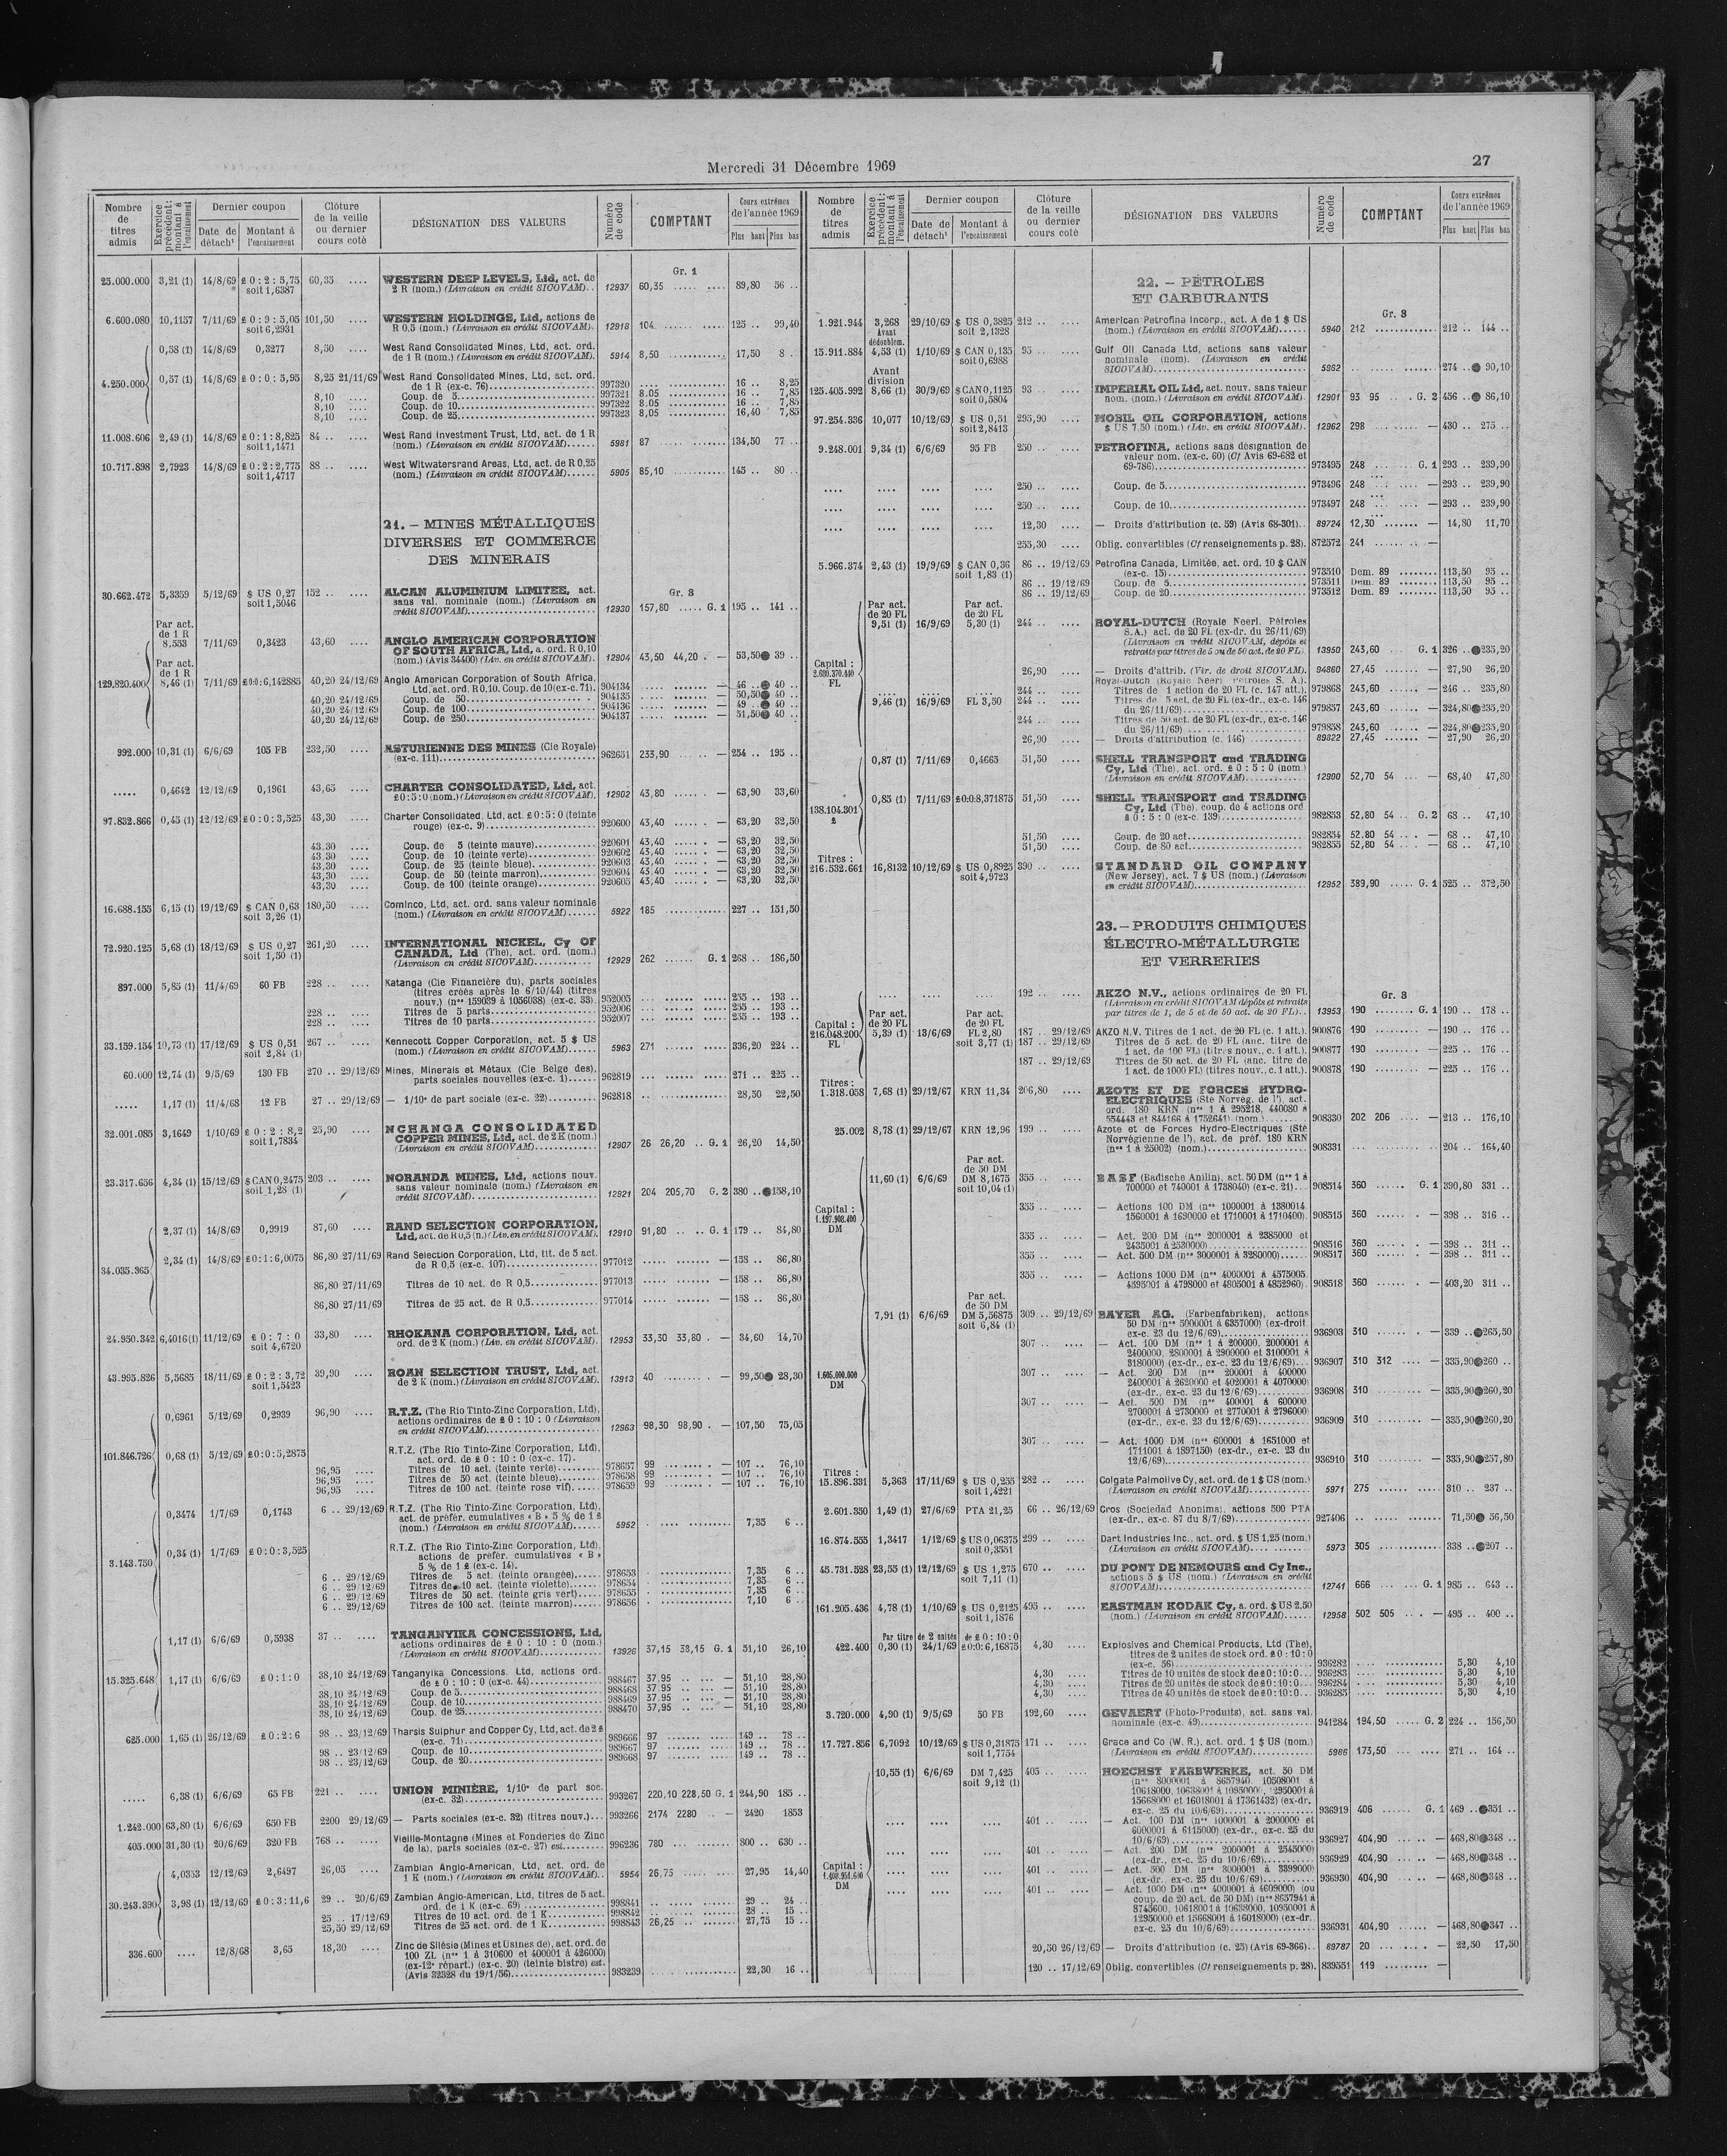 Mercredi 31 Décembre 1969
27
Nombre de titres admis
Exercice précédent : montant à l'encaissement
Dernier coupon
Date de détach¹
Montant à l'encaissement
Clôture de la veille ou dernier cours coté
DÉSIGNATION DES VALEURS
Numéro de code
COMPTANT
Cours extrêmes de l'année 1969
Plus haut Plus bas
Gr. 1
25.000.000 3,21 (1) 14/8/69 £ 0 : 2 : 5,75 60,35 .... WESTERN DEEP LEVELS, Ltd, act. de
soit 1,6387 2 R (nom.) (Livraison en crédit SICOVAM).. 12937 60,35 89,80 56 ..
6.600.080 10,1157 7/11/69 £ 0 : 9 : 5,05 101,50 .... WESTERN HOLDINGS, Ltd, actions de
soit 6,2931 R 0,5 (nom.) (Livraison en crédit SICOVAM). 12918 104 125 .. 99,40
0,58 (1) 14/8/69 0,3277 8,50 .... West Rand Consolidated Mines, Ltd, act. ord.
de 1 R (nom.) (Livraison en crédit SICOVAM). 5914 8,50 17,50 8 .
4.250.000 0,57 (1) 14/8/69 £ 0 : 0 : 5,95 8,25 21/11/69 West Rand Consolidated Mines, Ltd, act. ord.
de 1 R (ex-c. 76) 997320 16 .. 8,25
8,10 .... Coup. de 5 997321 8.05 16 .. 7,85
8,10 .... Coup. de 10 997322 8.05 16 .. 7,85
8,10 .... Coup. de 25 997323 8,05 16,40 7,85
11.008.606 2,49 (1) 14/8/69 £ 0 : 1 : 8,825 84 .. .... West Rand Investment Trust, Ltd, act. de 1 R
soit 1,1471 (nom.) (Livraison en crédit SICOVAM)...... 5981 87 134,50 77 ..
10.717.898 2,7923 14/8/69 £ 0 : 2 : 2,775 88 .. .... West Witwatersrand Areas, Ltd, act. de R 0,25
soit 1,4717 (nom.) (Livraison en crédit SICOVAM)...... 5905 85,10 145 .. 80 ..
21. – MINES MÉTALLIQUES
DIVERSES ET COMMERCE
DES MINERAIS
Gr. 3
30.662.472 5,3359 5/12/69 $ US 0,27 152 .. .... ALCAN ALUMINIUM LIMITEE, act.
soit 1,5046 sans val. nominale (nom.) (Livraison en
crédit SICOVAM) 12930 157,80 G. 1 195 .. 141 ..
Par act. de 1 R
8,553 7/11/69 0,3423 43,60 .... ANGLO AMERICAN CORPORATION
OF SOUTH AFRICA, Ltd, a. ord. R 0,10
(nom.) (Avis 34400) (Liv. en crédit SICOVAM). 12904 43,50 44,20 . — 53,50 39 ..
Par act. de 1 R
129.820.400 8,46 (1) 7/11/69 £ 0:0:6,142885 40,20 24/12/69 Anglo American Corporation of South Africa,
Ltd, act. ord. R 0,10. Coup. de 10 (ex-c. 71). 904134 — 46 .. 40 ..
40,20 24/12/69 Coup. de 50 904135 — 50,50 40 ..
40,20 24/12/69 Coup. de 100 904136 — 49 .. 40 ..
40,20 24/12/69 Coup. de 250 904137 — 51,50 40 ..
992.000 10,31 (1) 6/6/69 105 FB 232,50 .... ASTURIENNE DES MINES (Cie Royale)
(ex-c. 111) 962651 233,90 — 254 .. 195 ..
..... 0,4642 12/12/69 0,1961 43,65 .... CHARTER CONSOLIDATED, Ltd, act.
£ 0 : 5 : 0 (nom.) (Livraison en crédit SICOVAM). 12902 43,80 — 63,90 33,60
97.832.866 0,45 (1) 12/12/69 £ 0 : 0 : 3,525 43,30 .... Charter Consolidated, Ltd, act. £ 0 : 5 : 0 (teinte
rouge) (ex-c. 9) 920600 43,40 — 63,20 32,50
43,30 .... Coup. de 5 (teinte mauve) 920601 43,40 — 63,20 32,50
43,30 .... Coup. de 10 (teinte verte) 920602 43,40 — 63,20 32,50
43,30 .... Coup. de 25 (teinte bleue) 920603 43,40 — 63,20 32,50
43,30 .... Coup. de 50 (teinte marron) 920604 43,40 — 63,20 32,50
43,30 .... Coup. de 100 (teinte orange) 920605 43,40 — 63,20 32,50
16.688.155 6,15 (1) 19/12/69 $ CAN 0,63 180,50 .... Cominco, Ltd, act. ord. sans valeur nominale
soit 3,26 (1) (nom.) (Livraison en crédit SICOVAM)...... 5922 185 227 .. 151,50
72.920.125 5,68 (1) 18/12/69 $ US 0,27 261,20 .... INTERNATIONAL NICKEL, Cy OF
soit 1,50 (1) CANADA, Ltd (The), act. ord. (nom.)
(Livraison en crédit SICOVAM) 12929 262 G. 1 268 .. 186,50
897.000 5,85 (1) 11/4/69 60 FB 228 .. .... Katanga (Cie Financière du), parts sociales
(titres créés après le 6/10/44) (titres
nouv.) (nᵒˢ 159039 à 1056038) (ex-c. 33). 952005 255 .. 193 ..
228 .. .... Titres de 5 parts 952006 255 .. 193 ..
228 .. .... Titres de 10 parts 952007 255 .. 193 ..
33.159.154 10,73 (1) 17/12/69 $ US 0,51 267 .. .... Kennecott Copper Corporation, act. 5 $ US
soit 2,84 (1) (nom.) (Livraison en crédit SICOVAM)...... 5963 271 336,20 224 ..
60.000 12,74 (1) 9/5/69 130 FB 270 .. 29/12/69 Mines, Minerais et Métaux (Cie Belge des),
parts sociales nouvelles (ex-c. 1) 962819 271 .. 225 ..
..... 1,17 (1) 11/4/68 12 FB 27 .. 29/12/69 — 1/10ᵉ de part sociale (ex-c. 22) 962818 28,50 22,50
32.001.085 3,1649 1/10/69 £ 0 : 2 : 8,2 25,90 .... NCHANGA CONSOLIDATED
soit 1,7834 COPPER MINES, Ltd, act. de 2 K (nom.)
(Livraison en crédit SICOVAM) 12907 26 26,20 .. G. 1 26,20 14,50
23.317.656 4,34 (1) 15/12/69 $ CAN 0,2475 203 .. .... NORANDA MINES, Ltd, actions nouv.
soit 1,28 (1) sans valeur nominale (nom.) (Livraison en
crédit SICOVAM) 12921 204 205,70 G. 2 380 .. 158,10
2,37 (1) 14/8/69 0,9919 87,60 .... RAND SELECTION CORPORATION,
Ltd, act. de R 0,5 (n.) (Liv. en crédit SICOVAM). 12910 91,80 G. 1 179 .. 84,80
34.035.365 2,34 (1) 14/8/69 £ 0 : 1 : 6,0075 86,80 27/11/69 Rand Selection Corporation, Ltd, tit. de 5 act.
de R 0,5 (ex-c. 107) 977012 — 158 .. 86,80
86,80 27/11/69 Titres de 10 act. de R 0,5 977013 — 158 .. 86,80
86,80 27/11/69 Titres de 25 act. de R 0,5 977014 — 158 .. 86,80
24.950.342 6,4016 (1) 11/12/69 £ 0 : 7 : 0 33,80 .... RHOKANA CORPORATION, Ltd, act.
soit 4,6720 ord. de 2 K (nom.) (Liv. en crédit SICOVAM). 12953 33,30 33,80 . — 34,60 14,70
43.995.826 5,5685 18/11/69 £ 0 : 2 : 3,72 39,90 .... ROAN SELECTION TRUST, Ltd, act.
soit 1,5423 de 2 K (nom.) (Livraison en crédit SICOVAM). 13913 40 — 99,50 28,30
0,6961 5/12/69 0,2939 96,90 .... R.T.Z. (The Rio Tinto-Zinc Corporation, Ltd),
actions ordinaires de £ 0 : 10 : 0 (Livraison
en crédit SICOVAM) 12963 98,30 98,90 . — 107,50 75,05
101.846.726 0,68 (1) 5/12/69 £ 0:0:5,2875 R.T.Z. (The Rio Tinto-Zinc Corporation, Ltd),
act. ord. de £ 0 : 10 : 0 (ex-c. 17).
96,95 .... Titres de 10 act. (teinte verte) 978657 99 — 107 .. 76,10
96,95 .... Titres de 50 act. (teinte bleue) 978658 99 — 107 .. 76,10
96,95 .... Titres de 100 act. (teinte rose vif) 978659 99 — 107 .. 76,10
0,3474 1/7/69 0,1743 6 .. 29/12/69 R.T.Z. (The Rio Tinto-Zinc Corporation, Ltd),
act. de préfér. cumulatives « B » 5 % de 1 £
(nom.) (Livraison en crédit SICOVAM)...... 5952 7,35 6 ..
3.143.750 0,34 (1) 1/7/69 £ 0:0:3,525 R.T.Z. (The Rio Tinto-Zinc Corporation, Ltd),
actions de préfér. cumulatives « B »
5 % de 1 £ (ex-c. 14).
6 .. 29/12/69 Titres de 5 act. (teinte orangée) 978653 7,35 6 ..
6 .. 29/12/69 Titres de 10 act. (teinte violette) 978654 7,35 6 ..
6 .. 29/12/69 Titres de 50 act. (teinte gris vert) 978655 7,35 6 ..
6 .. 29/12/69 Titres de 100 act. (teinte marron) 978656 7,10 6 ..
1,17 (1) 6/6/69 0,5938 37 .. .... TANGANYIKA CONCESSIONS, Ltd,
actions ordinaires de £ 0 : 10 : 0 (nom.)
(Livraison en crédit SICOVAM) 13926 37,15 38,15 G. 1 51,10 26,10
15.325.648 1,17 (1) 6/6/69 £ 0 : 1 : 0 38,10 24/12/69 Tanganyika Concessions, Ltd, actions ord.
de £ 0 : 10 : 0 (ex-c. 44) 988467 37,95 — 51,10 28,80
38,10 24/12/69 Coup. de 5 988468 37,95 — 51,10 28,80
38,10 24/12/69 Coup. de 10 988469 37,95 — 51,10 28,80
38,10 24/12/69 Coup. de 25 988470 37,95 — 51,10 28,80
625.000 1,65 (1) 26/12/69 £ 0 : 2 : 6 98 .. 23/12/69 Tharsis Sulphur and Copper Cy, Ltd, act. de 2 £
(ex-c. 71) 989666 97 149 .. 78 ..
98 .. 23/12/69 Coup. de 10 989667 97 149 .. 78 ..
98 .. 23/12/69 Coup. de 20 989668 97 149 .. 78 ..
..... 6,38 (1) 6/6/69 65 FB 221 .. .... UNION MINIÈRE, 1/10ᵉ de part soc.
(ex-c. 32) 993267 220,10 228,50 G. 1 244,90 185 ..
1.242.000 63,80 (1) 6/6/69 650 FB 2200 29/12/69 — Parts sociales (ex-c. 32) (titres nouv.) 993266 2174 2280 — 2420 1853
405.000 31,30 (1) 20/6/69 320 FB 768 .. .... Vieille-Montagne (Mines et Fonderies de Zinc
de la), parts sociales (ex-c. 27) est. 996236 780 800 .. 630 ..
4,0353 12/12/69 2,6497 26,05 .... Zambian Anglo-American, Ltd, act. ord. de
1 K (nom.) (Livraison en crédit SICOVAM).. 5954 26,75 27,95 14,40
30.243.390 3,98 (1) 12/12/69 £ 0 : 3 : 11,6 29 .. 20/6/69 Zambian Anglo-American, Ltd, titres de 5 act.
ord. de 1 K (ex-c. 69) 998841 29 .. 24 ..
25 .. 17/12/69 Titres de 10 act. ord. de 1 K 998842 28 .. 15 ..
25,50 29/12/69 Titres de 25 act. ord. de 1 K 998843 26,25 27,75 15 ..
336.600 .... 12/8/68 3,65 18,30 .... Zinc de Silésie (Mines et Usines de), act. ord. de
100 ZL (nᵒˢ 1 à 310600 et 400001 à 426000)
(ex-12ᵉ répart.) (ex-c. 20) (teinte bistre) est.
(Avis 32328 du 19/1/56) 983239 22,30 16 ..
Nombre de titres admis
Exercice précédent : montant à l'encaissement
Dernier coupon
Date de détach¹
Montant à l'encaissement
Clôture de la veille ou dernier cours coté
DÉSIGNATION DES VALEURS
Numéro de code
COMPTANT
Cours extrêmes de l'année 1969
Plus haut Plus bas
22. – PÉTROLES
ET CARBURANTS
Gr. 3
1.921.944 3,268 29/10/69 $ US 0,3825 212 .. .... American Petrofina Incorp., act. A de 1 $ US
Avant dédoublem. soit 2,1328 (nom.) (Livraison en crédit SICOVAM)...... 5940 212 212 .. 144 ..
15.911.884 4,53 (1) 1/10/69 $ CAN 0,135 95 .. .... Gulf Oil Canada Ltd, actions sans valeur
soit 0,6988 nominale (nom). (Livraison en crédit
SICOVAM) 5962 274 .. 90,10
Avant division
125.405.992 8,66 (1) 30/9/69 $ CAN 0,1125 93 .... IMPERIAL OIL Ltd, act. nouv. sans valeur
soit 0,5804 nom. (nom.) (Livraison en crédit SICOVAM). 12901 93 95 G. 2 456 .. 86,10
97.254.336 10,077 10/12/69 $ US 0,51 295,90 .... MOBIL OIL CORPORATION, actions
soit 2,8413 $ US 7,50 (nom.) (Liv. en crédit SICOVAM). 12962 298 — 430 .. 275 ..
9.248.001 9,34 (1) 6/6/69 95 FB 250 .. .... PETROFINA, actions sans désignation de
valeur nom. (ex-c. 60) (Cf Avis 69-682 et
69-786) 973495 248 G. 1 293 .. 239,90
.... .... .... .... 250 .. .... Coup. de 5 973496 248 — 293 .. 239,90
.... .... .... .... 250 .. .... Coup. de 10 973497 248 — 293 .. 239,90
.... .... .... .... 12,30 .... — Droits d'attribution (c. 59) (Avis 68-301).. 89724 12,30 — 14,80 11,70
255,30 .... Oblig. convertibles (Cf renseignements p. 28). 872572 241 —
5.966.374 2,43 (1) 19/9/69 $ CAN 0,36 86 .. 19/12/69 Petrofina Canada, Limitée, act. ord. 10 $ CAN
soit 1,83 (1) (ex-c. 15) 973510 Dem. 89 — 113,50 95 ..
86 .. 19/12/69 Coup. de 5 973511 Dem. 89 — 113,50 95 ..
86 .. 19/12/69 Coup. de 20 973512 Dem. 89 — 113,50 95 ..
Par act. de 20 FL Par act. de 20 FL
9,51 (1) 16/9/69 5,30 (1) 244 .. .... ROYAL-DUTCH (Royale Neerl. Pétroles
S.A.) act. de 20 FL (ex-dr. du 26/11/69)
(Livraison en crédit SICOVAM, dépôts et
retraits par titres de 5 ou de 50 act. de 20 FL). 13950 243,60 G. 1 326 .. 235,20
Capital : FL
26,90 .... — Droits d'attrib. (Vir. de droit SICOVAM). 94860 27,45 — 27,90 26,20
Royal-Dutch (Royale Neerl. Pétroles S. A.).
.... .... .... 244 .. .... Titres de 1 action de 20 FL (c. 147 att.). 979868 243,60 — 246 .. 235,80
9,46 (1) 16/9/69 FL 3,50 244 .. .... Titres de 5 act. de 20 FL (ex-dr., ex-c. 146
du 26/11/69) 979857 243,60 — 324,80 235,20
244 .. .... Titres de 50 act. de 20 FL (ex-dr., ex-c. 146
du 26/11/69) 979858 243,60 — 324,80 235,20
26,90 .... — Droits d'attribution (c. 146) 89822 27,45 — 27,90 26,20
0,87 (1) 7/11/69 0,4665 51,50 .... SHELL TRANSPORT and TRADING
Cy, Ltd (The), act. ord. £ 0 : 5 : 0 (nom.)
(Livraison en crédit SICOVAM) 12900 52,70 54 — 68,40 47,80
138.104.301 £ 0,85 (1) 7/11/69 £ 0:0:8,371875 51,50 .... SHELL TRANSPORT and TRADING
Cy, Ltd (The), coup. de 4 actions ord
£ 0 : 5 : 0 (ex-c. 139) 982853 52,80 54 .. G. 2 68 .. 47,10
51,50 .... Coup. de 20 act 982854 52,80 54 — 68 .. 47,10
51,50 .... Coup. de 80 act 982855 52,80 54 — 68 .. 47,10
Titres :
216.532.661 16,8132 10/12/69 $ US 0,8925 390 .. .... STANDARD OIL COMPANY
soit 4,9723 (New Jersey), act. 7 $ US (nom.) (Livraison
en crédit SICOVAM) 12952 389,90 G. 1 525 .. 372,50
23. – PRODUITS CHIMIQUES
ÉLECTRO-MÉTALLURGIE
ET VERRERIES
Gr. 3
.... .... .... 192 .. .... AKZO N.V., actions ordinaires de 20 FL
(Livraison en crédit SICOVAM dépôts et retraits
par titres de 1, de 5 et de 50 act. de 20 FL).. 13953 190 G. 1 190 .. 178 ..
Capital : Par act. de 20 FL Par act. de 20 FL
216.048.200 FL 5,39 (1) 13/6/69 FL 2,80 187 .. 29/12/69 AKZO N.V. Titres de 1 act. de 20 FL (c. 1 att.). 900876 190 — 190 .. 176 ..
soit 3,77 (1) 187 .. 29/12/69 Titres de 5 act. de 20 FL (anc. titre de
1 act. de 100 FL) (titres nouv., c. 1 att.). 900877 190 — 225 .. 176 ..
187 .. 29/12/69 Titres de 50 act. de 20 FL (anc. titre de
1 act. de 1000 FL) (titres nouv., c. 1 att.). 900878 190 — 225 .. 176 ..
Titres :
1.318.058 7,68 (1) 29/12/67 KRN 11,34 206,80 .... AZOTE ET DE FORCES HYDRO-
ELECTRIQUES (Sté Norvég. de l'), act.
ord. 180 KRN (nᵒˢ 1 à 295218, 440080 à
554443 et 844166 à 1752641) (nom.) 908330 202 206 — 213 .. 176,10
25.002 8,78 (1) 29/12/67 KRN 12,96 199 .. .... Azote et de Forces Hydro-Electriques (Sté
Norvégienne de l'), act. de préf. 180 KRN
(nᵒˢ 1 à 25002) (nom.) 908331 204 .. 164,40
Par act. de 50 DM
11,60 (1) 6/6/69 DM 8,1675 355 .. .... BASF (Badische Anilin), act. 50 DM (nᵒˢ 1 à
soit 10,04 (1) 700000 et 740001 à 1738040) (ex-c. 21) 908514 360 G. 1 390,80 331 ..
Capital : DM
355 .. .... — Actions 100 DM (nᵒˢ 1000001 à 1380014,
1560001 à 1690000 et 1710001 à 1710400). 908515 360 — 398 .. 316 ..
355 .. .... — Act. 200 DM (nᵒˢ 2000001 à 2385000 et
2435001 à 2530000) 908516 360 — 398 .. 311 ..
355 .. .... — Act. 500 DM (nᵒˢ 3000001 à 3280000) 908517 360 — 398 .. 311 ..
355 .. .... — Actions 1000 DM (nᵒˢ 4000001 à 4575005,
4595001 à 4798000 et 4805001 à 4852960). 908518 360 — 403,20 311 ..
Par act. de 50 DM
7,91 (1) 6/6/69 DM 5,56875 309 .. 29/12/69 BAYER AG. (Farbenfabriken), actions
soit 6,84 (1) 50 DM (nᵒˢ 5000001 à 6357000) (ex-droit
ex-c. 23 du 12/6/69) 936903 310 — 339 .. 265,50
307 .. .... — Act. 100 DM (nᵒˢ 1 à 200000, 2000001 à
2400000, 2800001 à 2900000 et 3100001 à
3180000) (ex-dr., ex-c. 23 du 12/6/69) 936907 310 312 — 335,90 260 ..
1.665.000.000 DM 307 .. .... — Act. 200 DM (nᵒˢ 200001 à 400000
2400001 à 2620000 et 4020001 à 4070000)
(ex-dr., ex-c. 23 du 12/6/69) 936908 310 — 335,90 260,20
307 .. .... — Act. 500 DM (nᵒˢ 400001 à 600000
2700001 à 2730000 et 2770001 à 2796000)
(ex-dr., ex-c. 23 du 12/6/69) 936909 310 — 335,90 260,20
307 .. .... — Act. 1000 DM (nᵒˢ 600001 à 1651000 et
1711001 à 1897150) (ex-dr., ex-c. 23 du
12/6/69) 936910 310 — 335,90 257,80
Titres :
15.896.331 5,363 17/11/69 $ US 0,255 282 .. .... Colgate Palmolive Cy, act. ord. de 1 $ US (nom.)
soit 1,4221 (Livraison en crédit SICOVAM) 5971 275 310 .. 237 ..
2.601.350 1,49 (1) 27/6/69 PTA 21,25 66 .. 26/12/69 Cros (Sociedad Anonima), actions 500 PTA
(ex-dr., ex-c. 87 du 8/7/69) 927406 71,50 56,50
16.874.555 1,3417 1/12/69 $ US 0,06375 299 .. .... Dart Industries Inc., act. ord. $ US 1,25 (nom.)
soit 0,3551 (Livraison en crédit SICOVAM) 5973 305 338 .. 207 ..
45.731.528 23,55 (1) 12/12/69 $ US 1,275 670 .. .... DU PONT DE NEMOURS and Cy Inc.,
soit 7,11 (1) actions 5 $ US (nom.) (Livraison en crédit
SICOVAM) 12741 666 G. 1 985 .. 643 ..
161.205.436 4,78 (1) 1/10/69 $ US 0,2125 495 .. .... EASTMAN KODAK Cy, a. ord. $ US 2,50
soit 1,1876 (nom.) (Livraison en crédit SICOVAM) 12958 502 505 — 495 .. 400 ..
Par titre de 2 unités de £ 0 : 10 : 0
422.400 0,30 (1) 24/1/69 £ 0:0:6,16875 4,30 Explosives and Chemical Products, Ltd (The),
titres de 2 unités de stock ord. £ 0 : 10 : 0
(ex-c. 56) 936282 5,30 4,10
4,30 .... Titres de 10 unités de stock de £ 0 : 10 : 0 936283 5,30 4,10
4,30 .... Titres de 20 unités de stock de £ 0 : 10 : 0 936284 5,30 4,10
4,30 .... Titres de 40 unités de stock de £ 0 : 10 : 0 936285 5,30 4,10
3.720.000 4,90 (1) 9/5/69 50 FB 192,60 .... GEVAERT (Photo-Produits), act. sans val.
nominale (ex-c. 49) 941284 194,50 G. 2 224 .. 156,50
17.727.856 6,7092 10/12/69 $ US 0,31875 171 .. .... Grace and Co (W. R.), act. ord. 1 $ US (nom.)
soit 1,7754 (Livraison en crédit SICOVAM) 5986 173,50 271 .. 164 ..
10,55 (1) 6/6/69 DM 7,425 405 .. .... HOECHST FARBWERKE, act. 50 DM
soit 9,12 (1) (nᵒˢ 8000001 à 8657940, 10508001 à
10618000, 10638001 à 10950000, 12950001 à
15668000 et 16018001 à 17361432) (ex-dr.
ex-c. 25 du 10/6/69) 936919 406 G. 1 469 .. 351 ..
.... .... .... 401 .. .... — Act. 100 DM (nᵒˢ 1000001 à 2000000 et
6000001 à 6115000) (ex-dr., ex-c. 25 du
10/6/69) 936927 404,90 — 468,80 348 ..
.... .... .... 401 .. .... — Act. 200 DM (nᵒˢ 2000001 à 2545000)
(ex-dr., ex-c. 25 du 10/6/69) 936929 404,90 — 468,80 348 ..
Capital : DM
.... .... .... 401 .. .... — Act. 500 DM (nᵒˢ 3000001 à 3399000)
(ex-dr., ex-c. 25 du 10/6/69) 936930 404,90 — 468,80 348 ..
.... .... .... 401 .. .... — Act. 1000 DM (nᵒˢ 4000001 à 4609000) (ou
coup. de 20 act. de 50 DM) (nᵒˢ 8657941 à
8745600, 10618001 à 10638000, 10950001 à
12950000 et 15668001 à 16018000) (ex-dr.
ex-c. 25 du 10/6/69) 936931 404,90 — 468,80 347 ..
20,50 26/12/69 — Droits d'attribution (c. 25) (Avis 69-366).. 89787 20 — 22,50 17,50
120 .. 17/12/69 Oblig. convertibles (Cf renseignements p. 28). 839551 119 —